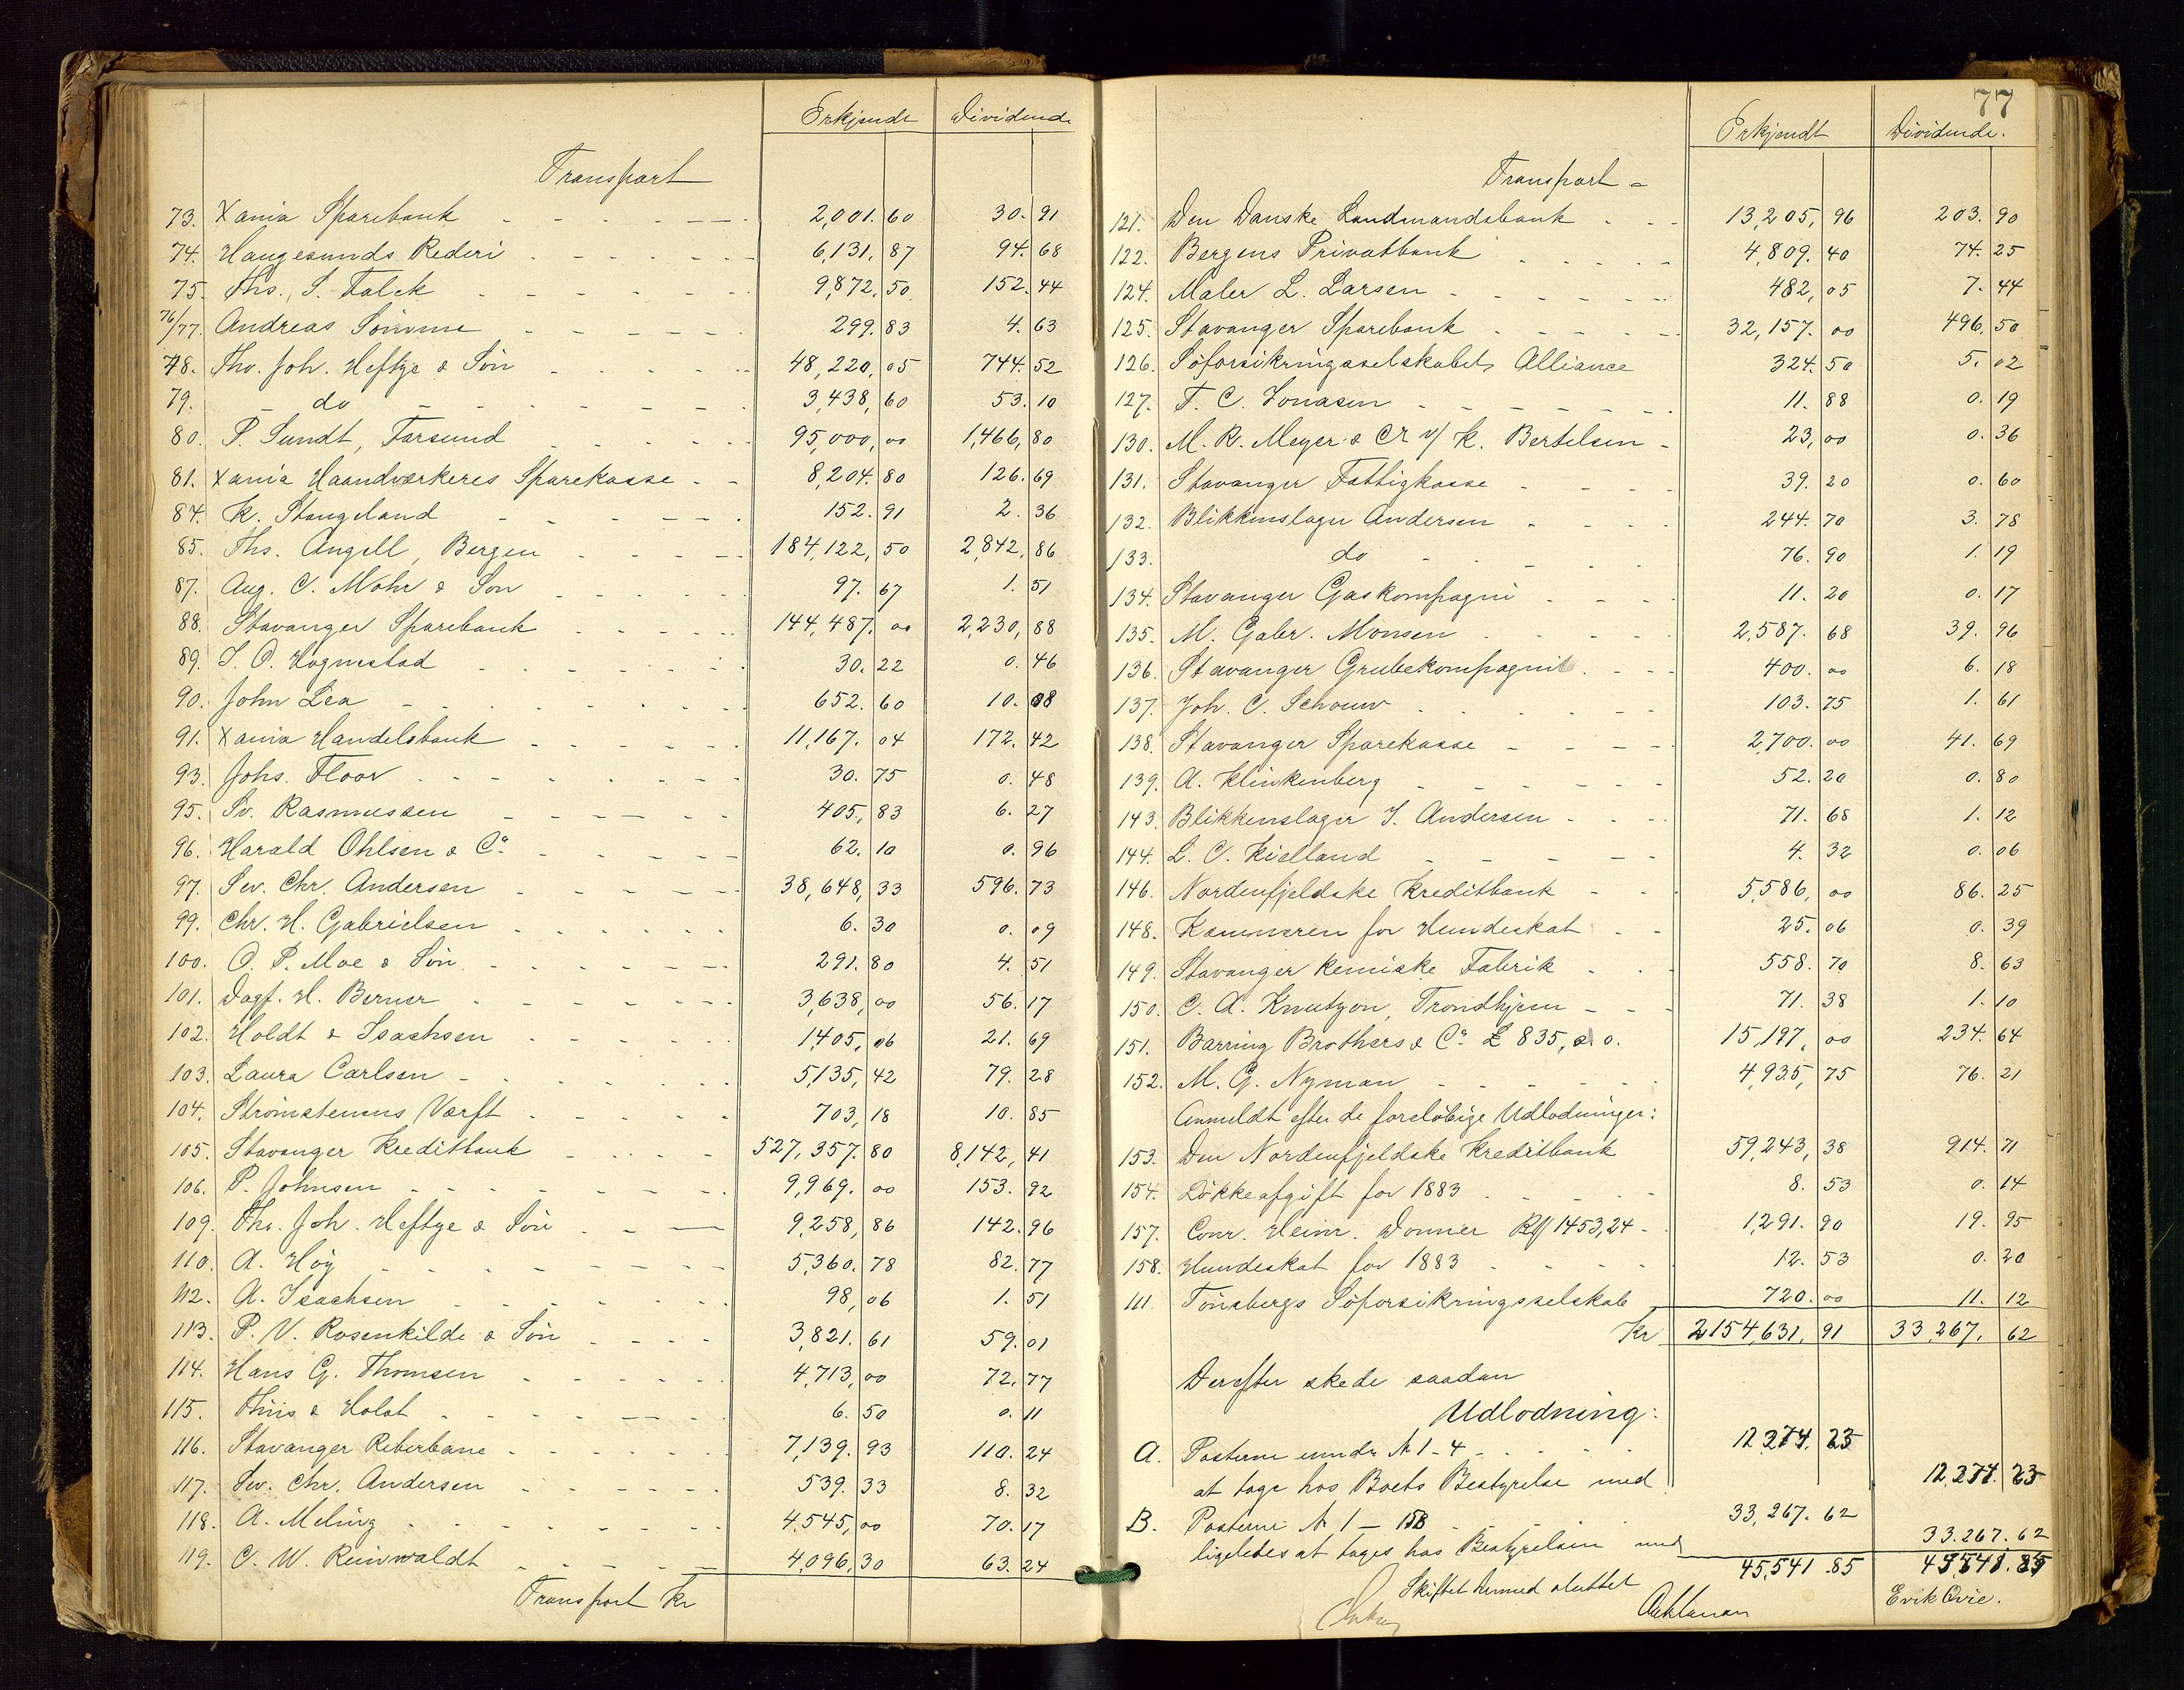 Erkjendt Dividende
Transport
73. Xania Sparebank 2,001.60 30.91
74. Haugesunds Rederi 6,131,87 94.68
75. Ths. S. Falck 9,872.50 152.44
76/77. Andreas Sömme 299.83 4.63
78. Tho. Joh. Heftye & Sön 48,220,05 744.52
79. — do — 3,438,60 53.10
80. P. Sundt, Farsund 95,000,00 1,466,80
81. Xania Haandværkeres Sparekasse 8,204.80 126.69
84. K. Stangeland 152.91 2.36
85. Ths. Angell, Bergen 184,122,50 2,842,86
87. Aug. C. Mohr & Son 97.67 1.51
88. Stavanger Sparebank 144,487.00 2,230,88
89. S. O. Hognestad 30.22 0.46
90. John Lea 652.60 10.08
91. Xania Handelsbank 11,167.04 172.42
93. Johs. Floor 30.75 0.48
95. Sv. Rasmussen 405,83 6.27
96. Harald Ohlsen & Co 62.10 0.96
97. Sev. Chr. Andersen 38,648,33 596.73
99. Chr. H. Gabrielsen 6.30 0.09
100. O. P. Moe & Sön 291.80 4.51
101. Dagf. H. Berner 3,638,00 56.17
102. Holdt & Isachsen 1,405,06 21.69
103. Laura Carlsen 5,135,42 79.28
104. Strömstenens Værft 703,18 10.85
105. Stavanger Kreditbank 527,357.80 8,142,41
106. P. Johnsen 9,969.00 153.92
109. Tho. Joh. Heftye & Sön 9,258,86 142.96
110. A. Höy 5,360.78 82.77
112. A. Isachsen 98,06 1.51
113. P. V. Rosenkilde & Sön 3,821.61 59.01
114. Hans G. Thomsen 4,713,00 72.77
115. Thiis & Holdt 6.50 0.11
116. Stavanger Reberbane 7,139.93 110.24
117. Sev. Chr. Andersen 539.33 8.32
118. A. Meling 4,545,00 70.17
119. C. W. Reinwaldt 4,096,30 63.24
Transport Kr
77
Erkjendt Dividende.
Transport
121. Den Danske Landmandsbank 13,205,96 203.90
122. Bergens Privatbank 4,809.40 74.25
124. Maler L. Larsen 482,05 7.44
125. Stavanger Sparebank 32,157.00 496.50
126. Söforsikringsselskabet Alliance 324.50 5.02
127. T. C. Jonasen 11.88 0.19
130. M. R. Meyer & Co v/ K. Bertelsen 23,00 0.36
131. Stavanger Fattigkasse 39.20 0.60
132. Blikkenslager Andersen 244.70 3.78
133. do 76.90 1.19
134. Stavanger Gaskompagni 11.20 0.17
135. M. Gabr. Monsen 2,587.68 39.96
136. Stavanger Grubekompagni 400.00 6.18
137. Joh. C. Schouw 103.75 1.61
138. Stavanger Sparekasse 2,700.00 41.69
139. A. Klinkenberg 52.20 0.80
143. Blikkenslager J. Andersen 71.68 1.12
144. L. C. Kielland 4.32 0.06
146. Nordenfjeldske Kreditbank 5,586,00 86.25
148. Kæmneren for Hundeskat 25.06 0.39
149. Stavanger kemiske Fabrik 558.70 8.63
150. C. A. Knutzon, Trondhjem 71.38 1.10
151. Barring Brothers & Co £ 835,0.0. 15,197,00 234.64
152. M. G. Nyman 4,935,75 76.21
Anmeldt efter de foreløbige Udlodninger:
153. Den Nordenfjeldske Kreditbank 59,243,38 914.71
154. Lökkeafgift for 1883 8.53 0.14
157. Conr. Heinr. Donner RM 1453,24 1,291.90 19.95
158. Hundeskat for 1883 12.53 0.20
111. Tönsbergs Söforsikringsselskab 720.00 11.12
Kr 2154,631,91 33,267.62
Derefter skede saadan
Udlodning:
A. Posterne under № 1-4 12,274.23
at tage hos Boets Bestyrelse med 12,274.23
B. Posterne № 1 — 158 33,267.62
ligeledes at tages hos Bestyrelsen med 33.267.62
45,541.85 45,541.85
Skiftet dermed sluttet
Erik Qvie.